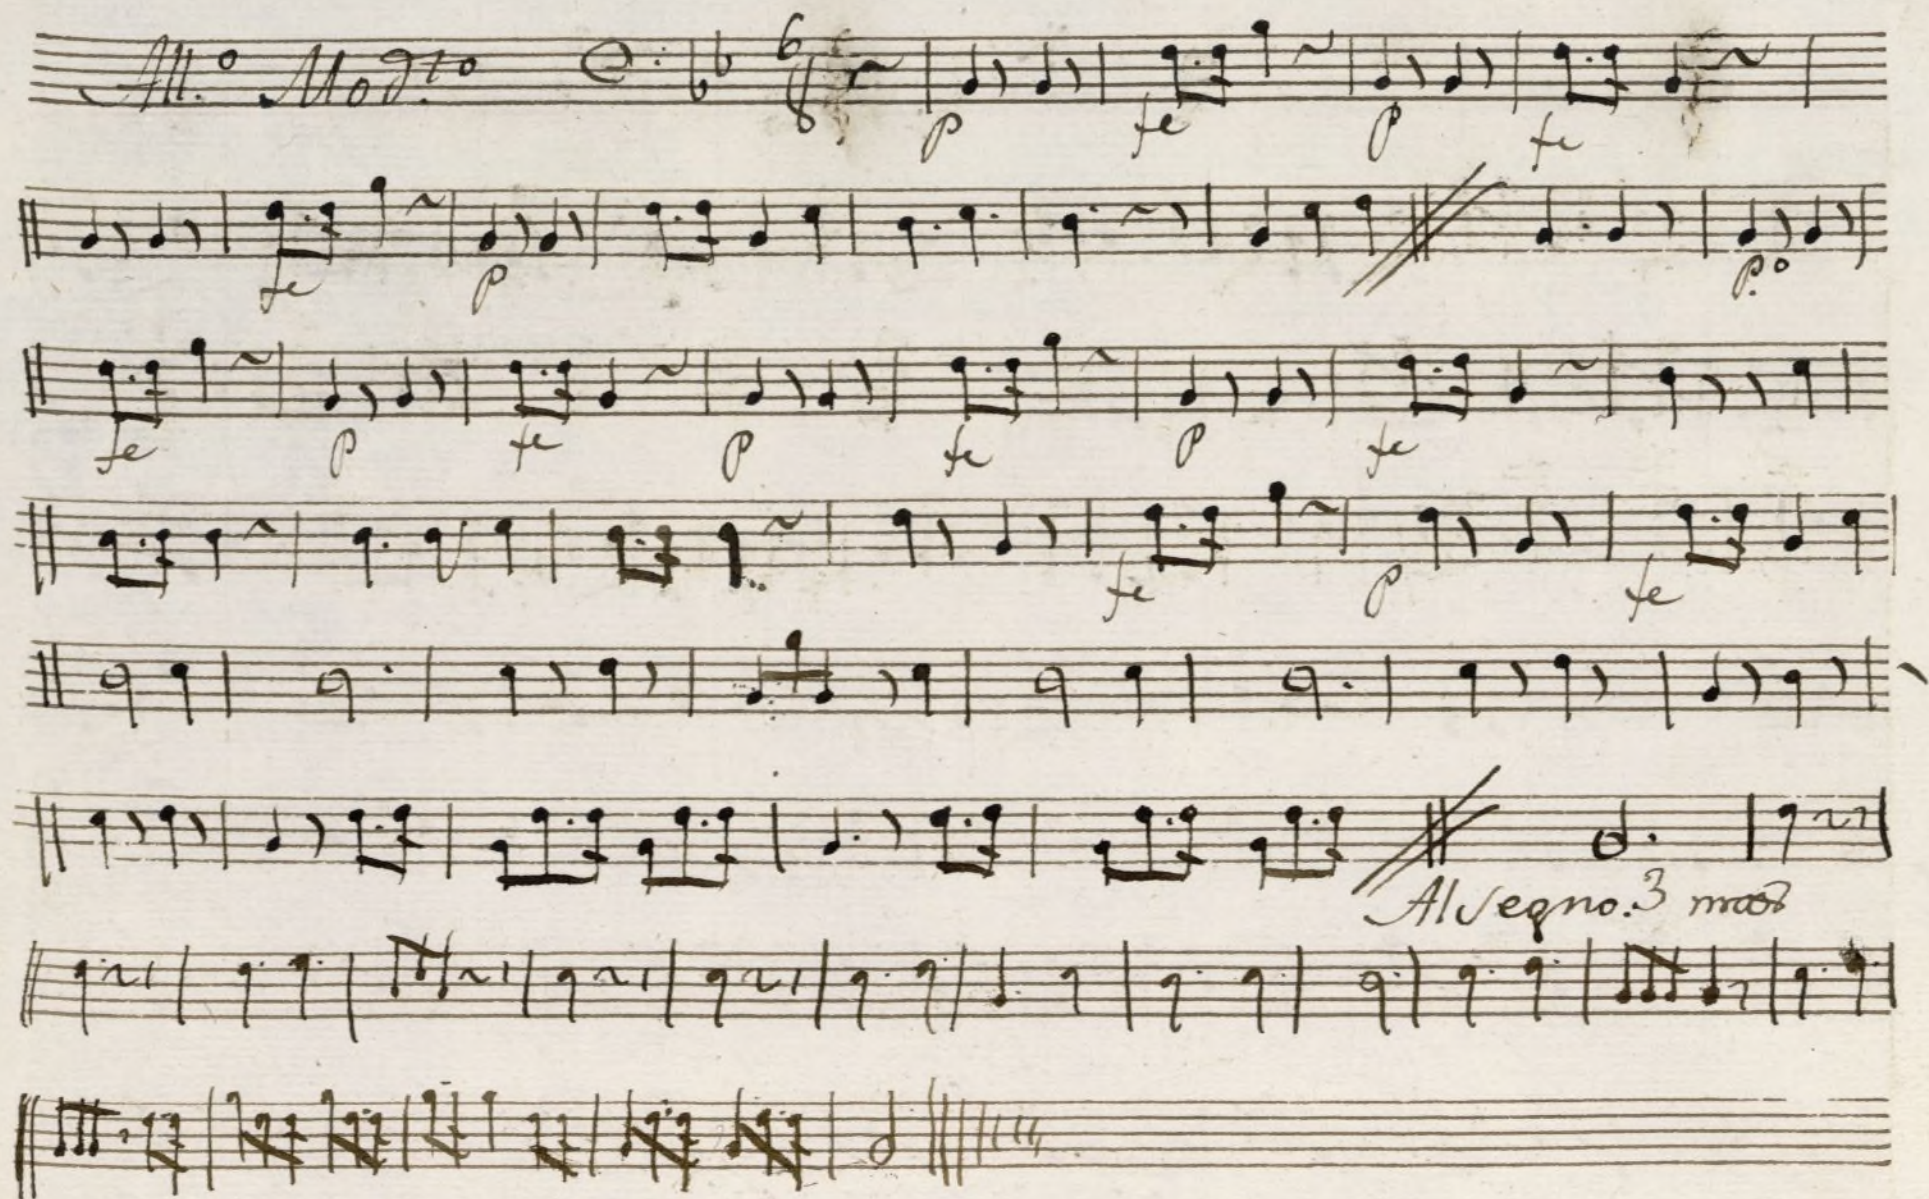 All.o Mod.to 6 8
p fe p fe
fe p p.o
fe p fe p fe p fe
fe p fe
Al segno. 3